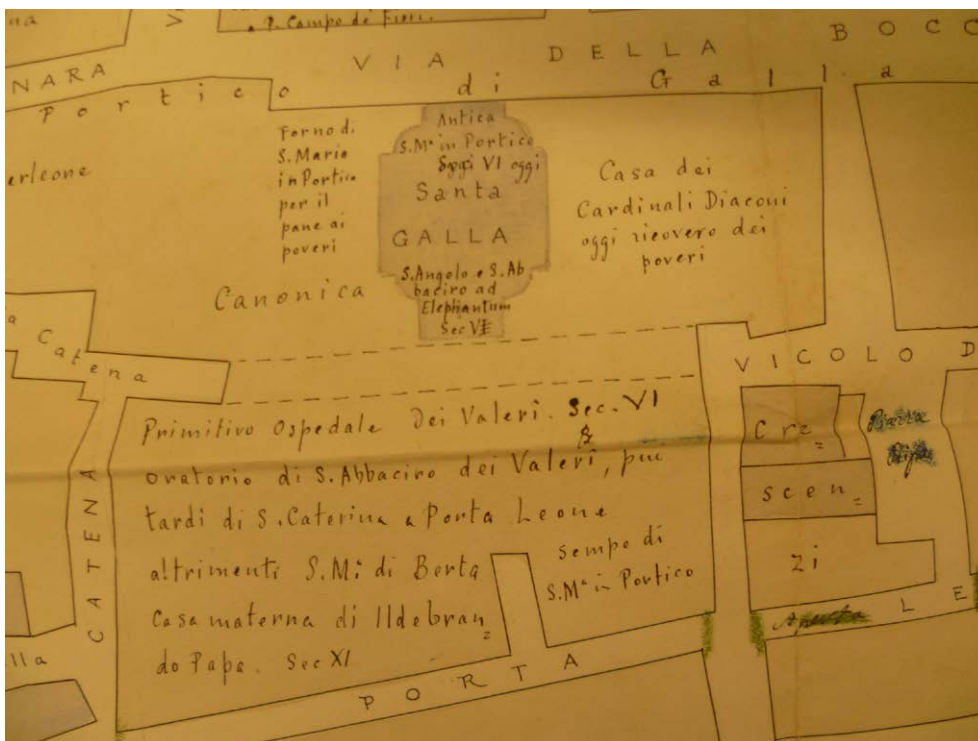 na
V
a P. Campo de Fiori.
NARA
VIA DELLA BOCC
Portico di Galla
erleone
Forno di
S. Maria
in Portico
per il
pane ai
poveri
Antica
S. Mª in Portico
VI oggi
Santa
GALLA
S. Angelo e S. Ab
baciro ad
Elephantum
Sec VII
Casa dei
Cardinali Diaconi
oggi ricovero dei
poveri
Canonica
a
Catena
VICOLO D
Primitivo Ospedale Dei Valeri. Sec. VI
oratorio di S. Abbaciro dei Valeri, piu
tardi di S. Caterina a Porta Leone
altrimenti S. Mª di Berta
Casa materna di Ildebran=
do Papa. Sec XI
Sempo di
S. Mª in Portico
Crz=
scen=
zi
Piazza
CATENA
lla
PORTA LE